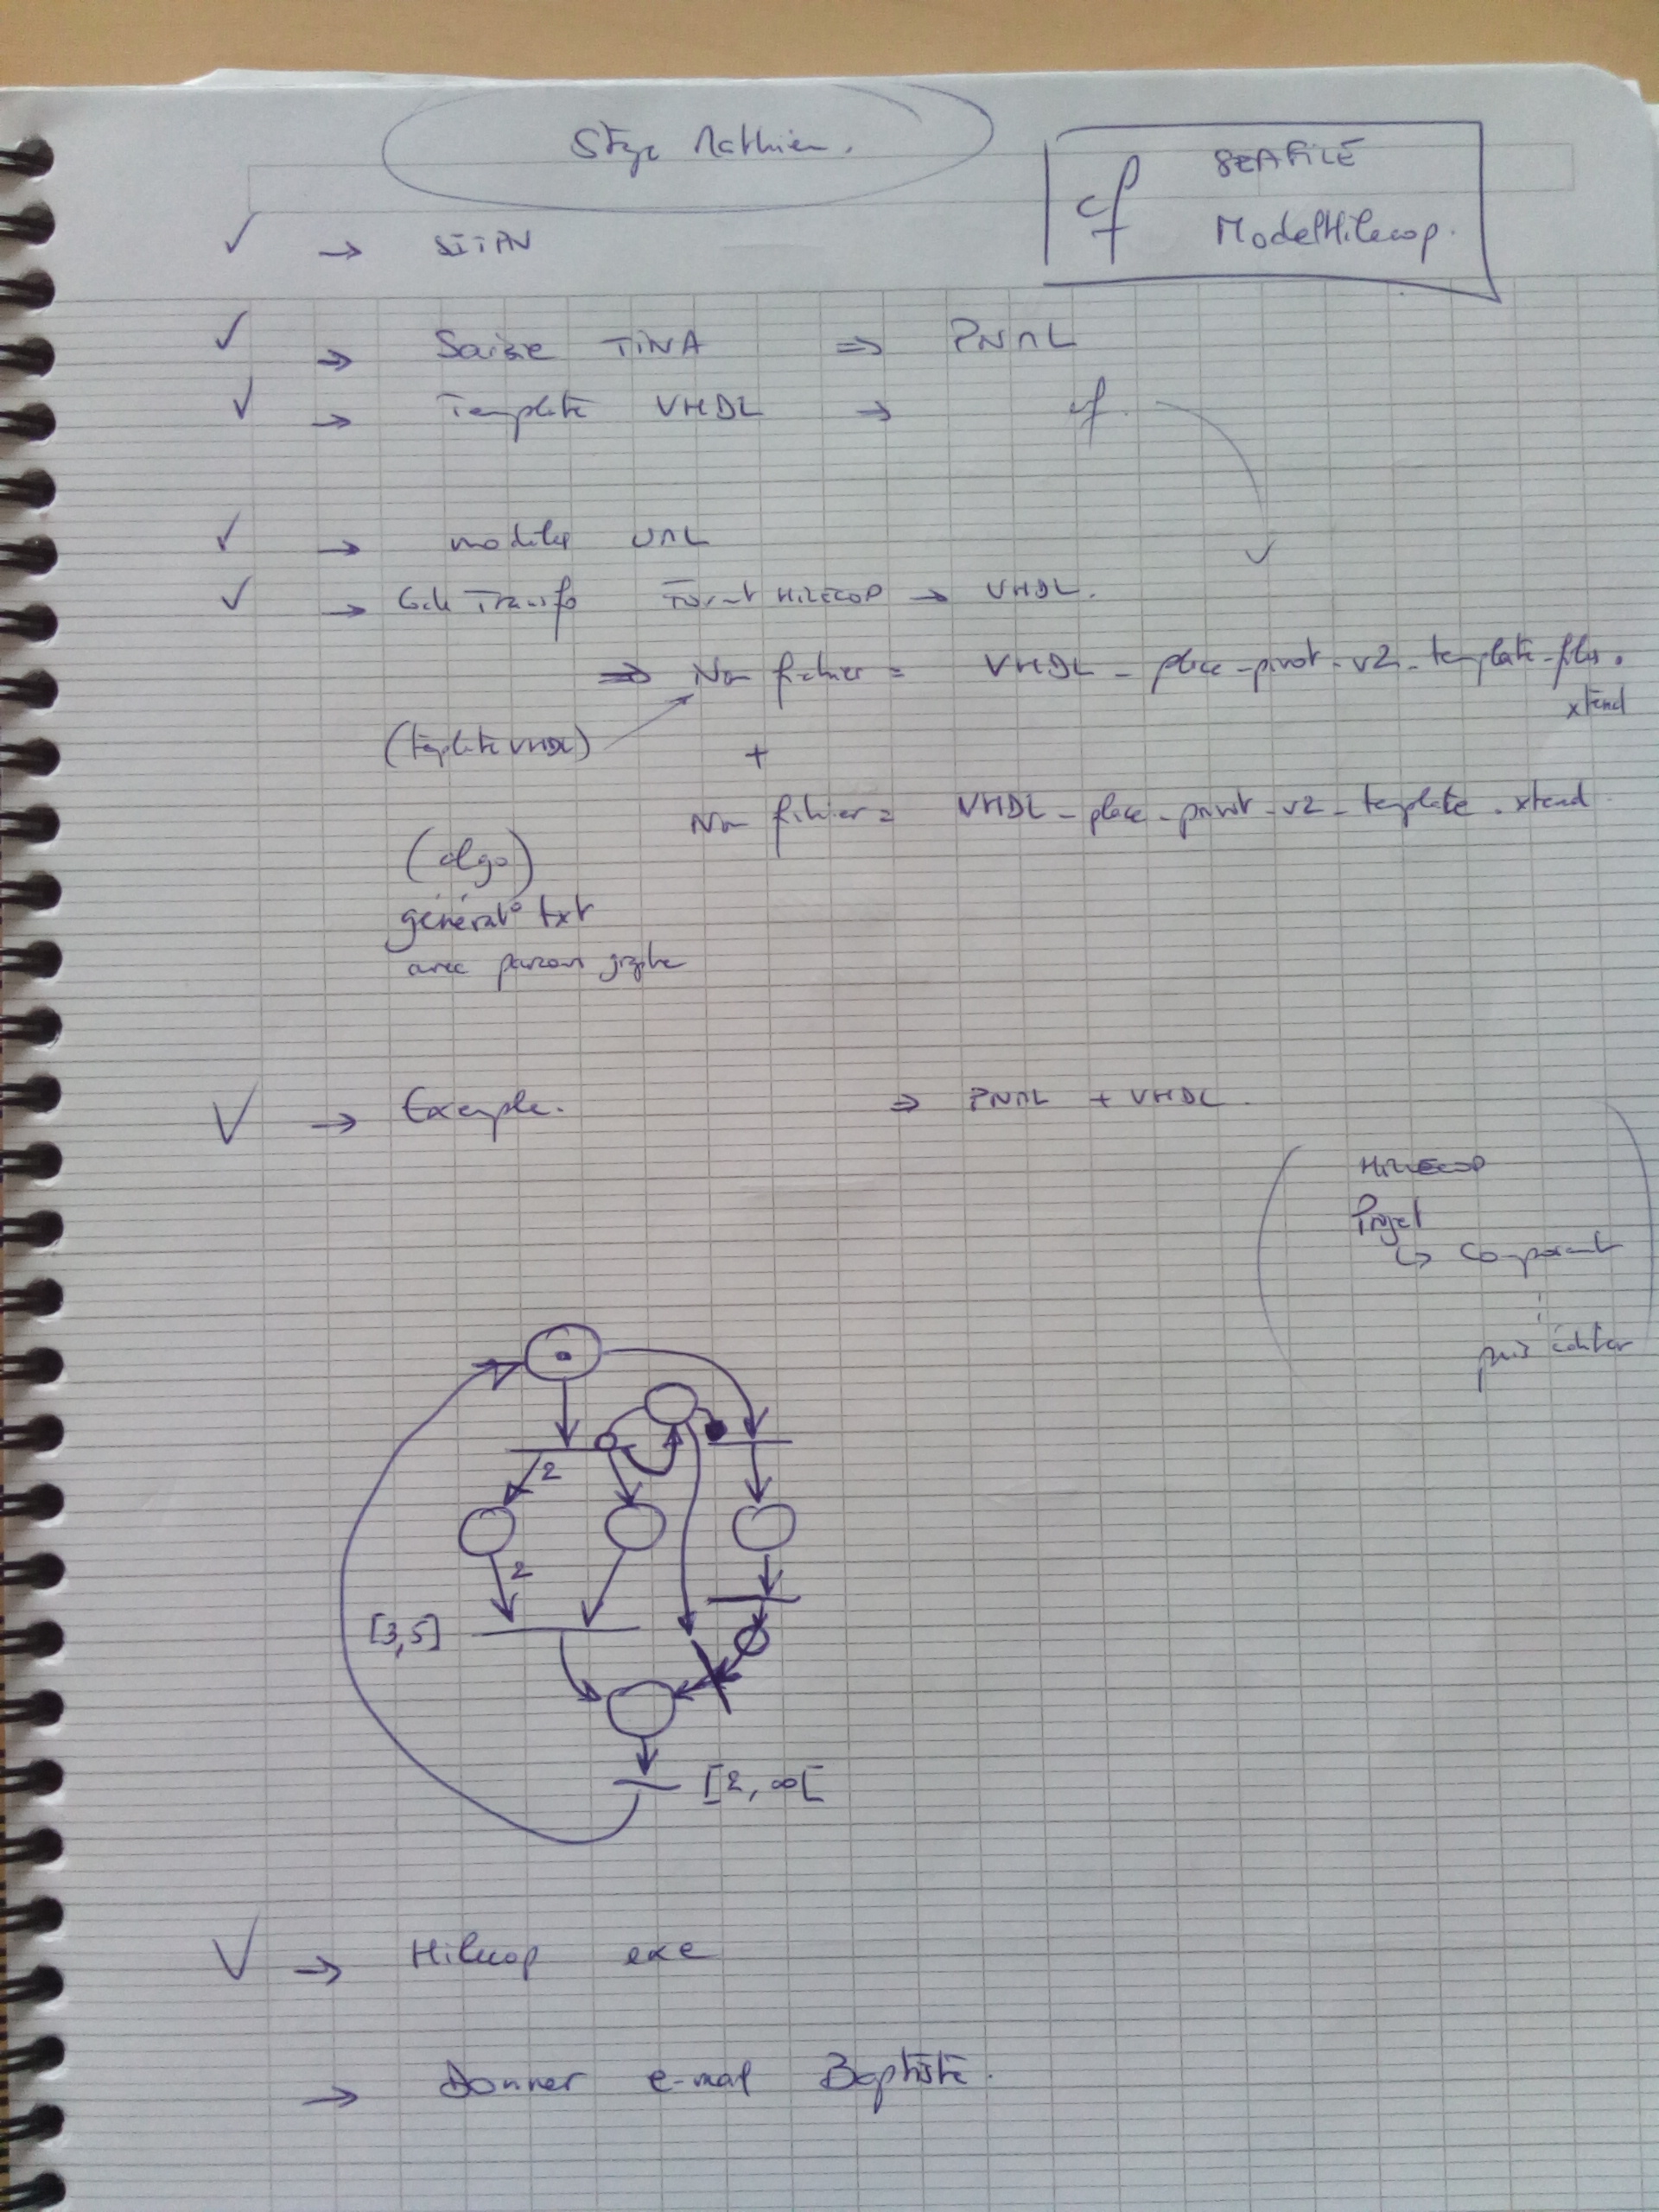 Stage Mathieu.
cf SEAFILE
ModelHilecop.
✓ → SITPN
✓ → Saisie TINA ⇒ PNML
✓ → Template VHDL → cf.
✓ → modèles UML
✓ → Code Transfo Format HILECOP → VHDL.
⇒ Nom fichier = VHDL_place_pivot_v2_template_files.
xtend
(template VHDL)
+
Nom fichier = VHDL_place_pivot_v2_template.xtend
(algo)
générat° txt
avec parcours graphe
✓ → Exemple. ⇒ PNML + VHDL.
HILECOP
Projet
↳ Composant
puis éditer
2
2
[3,5]
[2, ∞[
✓ → Hilecop exe
→ Donner e-mail Baptiste.